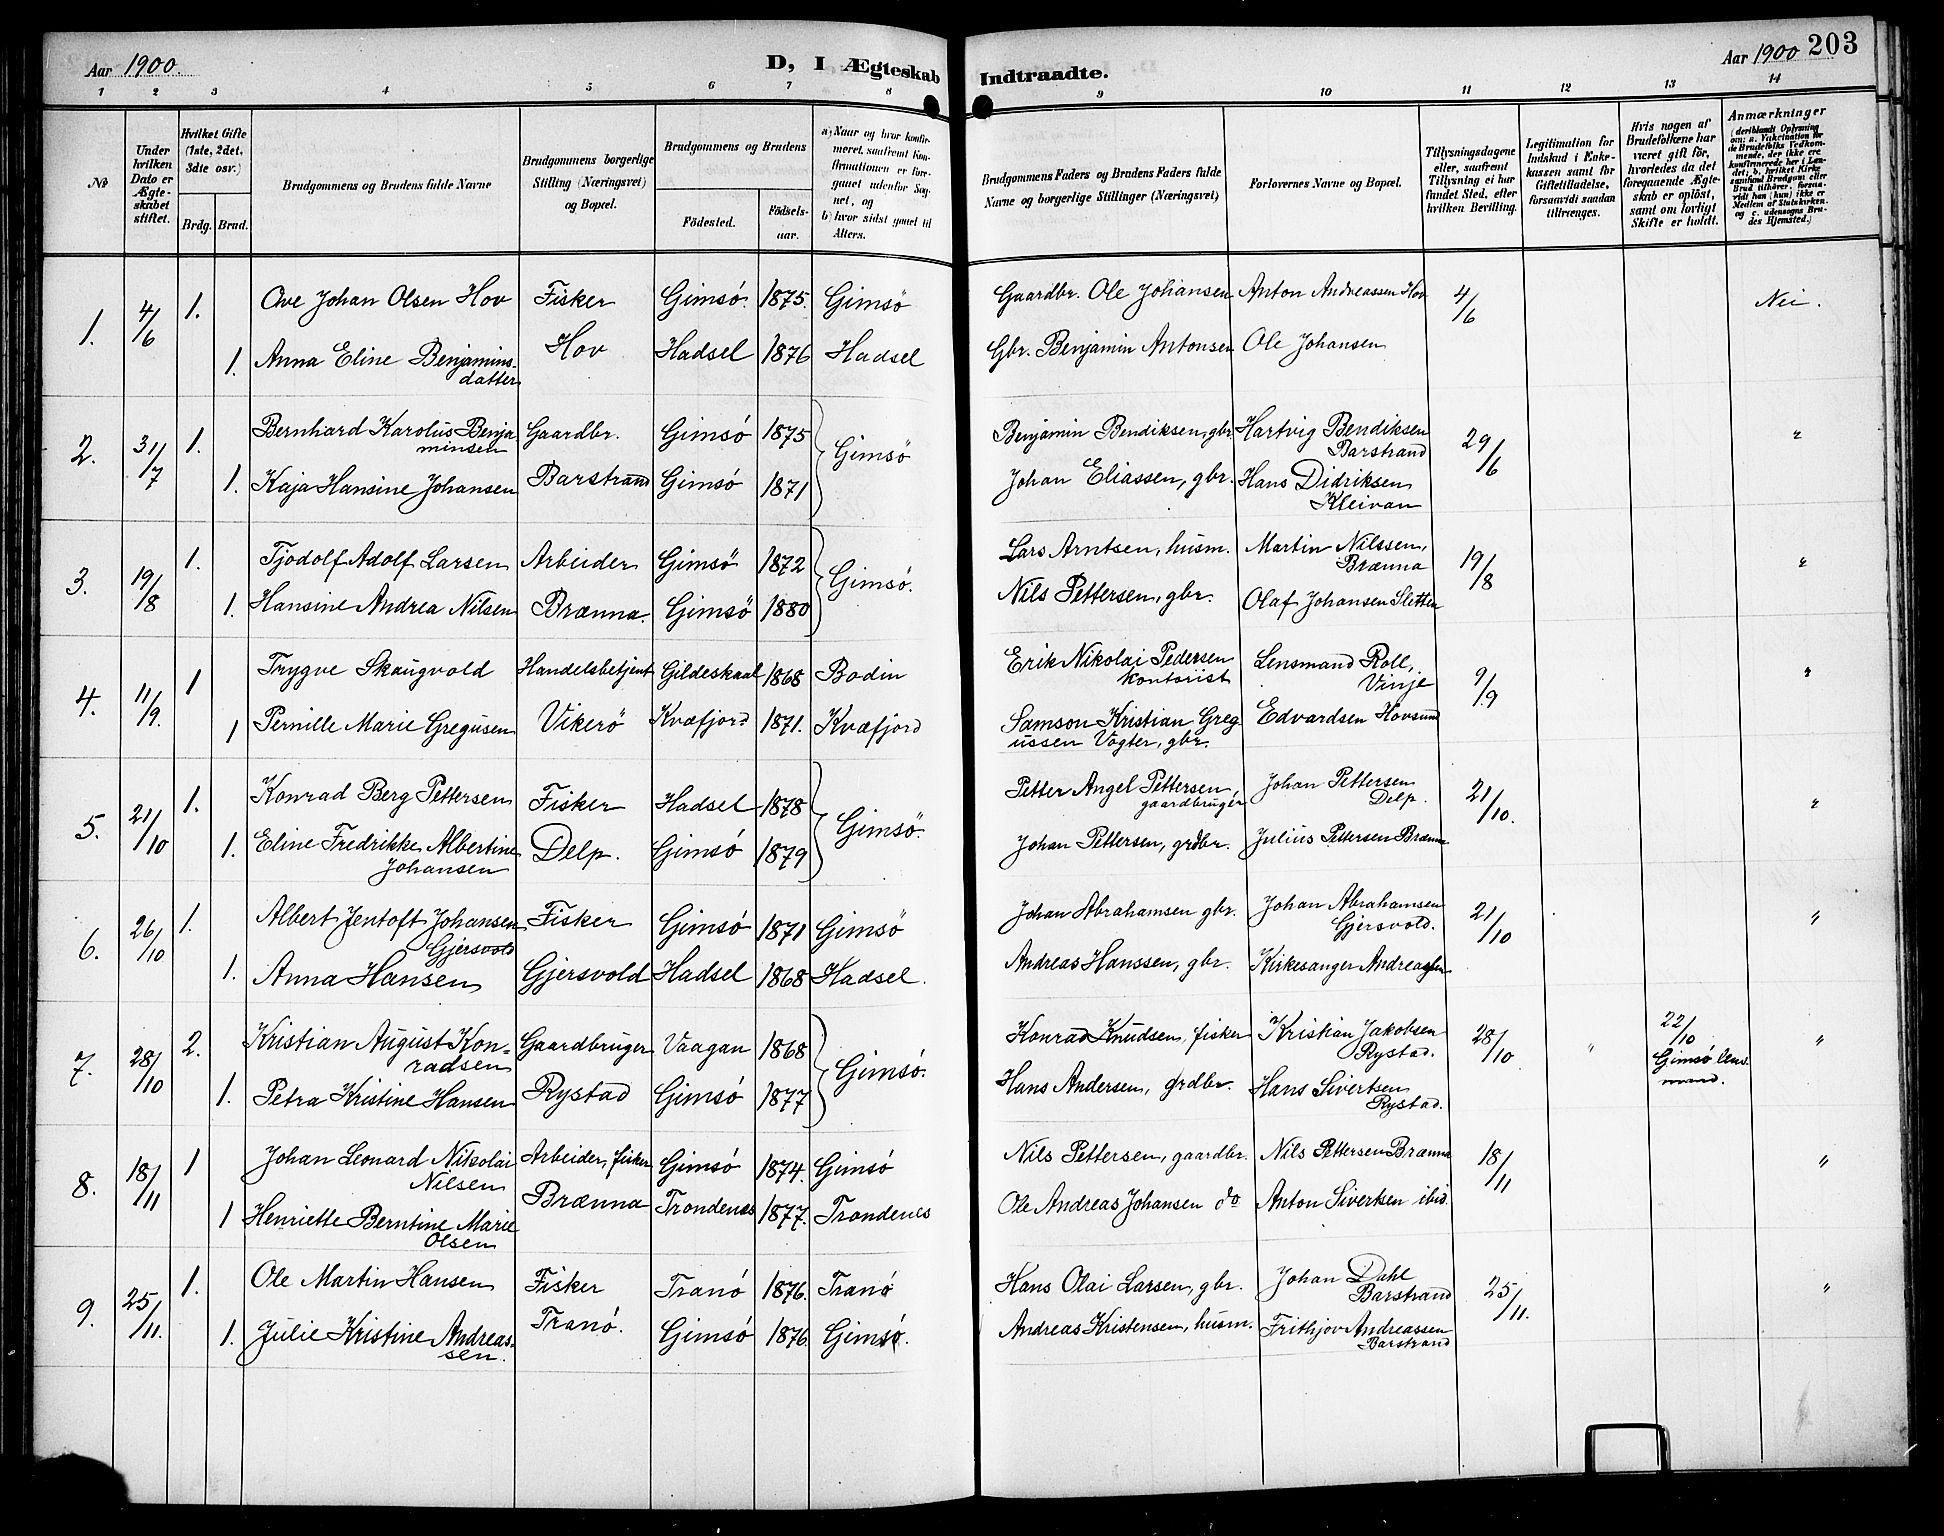 Aar 1900.
D, I Ægteskab Indtraadte.
Aar 1900 203
1 2 3 4 5 6 7 8 9 10 11 12 13 14
№
Under hvilken Dato er Ægteskabet stiftet.
Hvilket Gifte (1ste, 2det, 3die osv.)
Brdg. Brud.
Brudgommens og Brudens fulde Navne
Brudgommens borgerlige Stilling (Næringsvei) og Bopæl.
Brudgommens og Brudens
Fødested.
Fødselsaar.
a) Naar og hvor konfirmeret, saafremt Konfirmationen er foregaaet udenfor Sognet, og
b) hvor sidst gaaet til Alters.
Brudgommens Faders og Brudens Faders fulde Navne og borgerlige Stillinger (Næringsvei)
Forlovernes Navne og Bopæl.
Tillysningsdagene eller, saafremt Tillysning ei har fundet Sted, efter hvilken Bevilling.
Legitimation for Indskud i Enkekassen samt for Giftetilladelse, forsaavidt saadan tiltrænges.
Hvis nogen af Brudefolkene har været gift før, hvorledes da det foregaaende Ægteskab er opløst, samt om lovligt Skifte er holdt.
Anmærkninger
1. 4/6 1. Ove Johan Olsen Hov Fisker Gimsö. 1875. Gimsö Gaardbr. Ole Johansen Anton Andreassen Hov 4/6 Nei.
1. Anna Eline Benjamins- Hov Hadsel 1876 Hadsel Gbr. Benjamin Antonsen Ole Johansen
datter
2. 31/7 1. Bernhard Karolus Benja Gaardbr. Gimsö 1875 Gimsö Benjamin Bendiksen, gbr Hartvig Bendiksen 29/6 "
minsen Barstrand
1. Kaja Hansine Johansen Barstrand Gimsö 1871 Johan Eliassen, gbr. Hans Didriksen
Kleivan
3. 19/8 1. Tjodolf Adolf Larsen Arbeider Gimsö 1872 Gimsö. Lars Arntsen, husm. Martin Nilssen, 19/8 "
Brænna
1. Hansine Andrea Nilsen Brænna. Gimsö 1880 Nils Pettersen, gbr. Olaf Johansen Sletten
4. 11/9. 1 Trygve Skaugvold Handelsbetjent Gildeskaal 1868 Bodin Erik Nikolai Pedersen Lensmand Roll, 9/9 "
kontorist Vinje
1 Pernille Marie Gregusen Vikerö Kvæfjord 1871. Kvæfjord Samson Kristian Greg Edvardsen Hovsund
ussen Vogter, gbr.
5. 21/10 1. Konrad Berg Pettersen Fisker Hadsel 1878 Gimsö. Petter Angel Pettersen, Johan Pettersen 21/10. "
gaardbruger Delp.
1. Eline Fredrikke Albertine Delp. Gimsö 1879 Johan Pettersen, grdbr. Julius Pettersen Brænna
Johansen
6. 26/10 1. Albert Jentoft Johansen Fisker Gimsö 1871 Gimsö Johan Abrahamsen gbr. Johan Abrahamsen 21/10 "
Gjersvold Gjersvold.
1. Anna Hansen Gjersvold Hadsel 1868 Hadsel. Andreas Hanssen, gbr. Kirkesanger Andreassen
7. 28/10 2. Kristian August Kon- Gaardbruger Vaagan 1868 Gimsö. Konrad Knudsen, fisker Kristian Jakobsen 28/10 " 22/10 "
radsen Rystad. Gimsö Lens
1. Petra Kristine Hansen Rystad Gimsö 1877 Hans Andersen, grdbr. Hans Sivertsen mand.
Rystad.
8. 18/11 1 Johan Leonard Nikolai Arbeider, fisker Gimsö 1874. Gimsö Nils Pettersen, gaardbr. Nils Pettersen Brænna 18/11 "
Nilsen
1 Henriette Berntine Marie Brænna Trondenes 1877. Trondenes Ole Andreas Johansen do Anton Sivertsen ibid.
Olsen
9. 25/11. 1. Ole Martin Hansen Fisker Tranö 1876. Tranö Hans Olai Larsen, gbr. Johan Dahl 25/11. "
Barstrand
1. Julie Kristine Andreas- Tranö. Gimsö 1876. Gimsö. Andreas Kristensen, husm. Frithjov Andreassen
sen. Barstrand